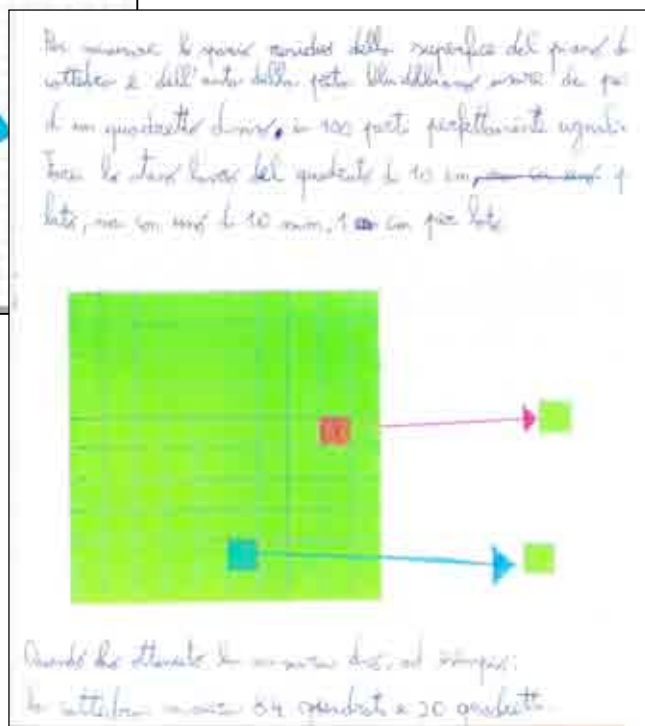 Per misurare lo spazio residuo della superfice del piano d
cattedra e dell'anta della porta blu dobbiamo usare dei
di un quadretto diviso, in 100 parti perfettamente uguali.
lo stesso lavoro del quadrato di 10 cm,
lato, ma con uno di 10 mm, 1 cm per lato
Quando ho ottenuto la misura dirò, ad esempio:
la cattedra misura 84 quadrati e 20 quadretti